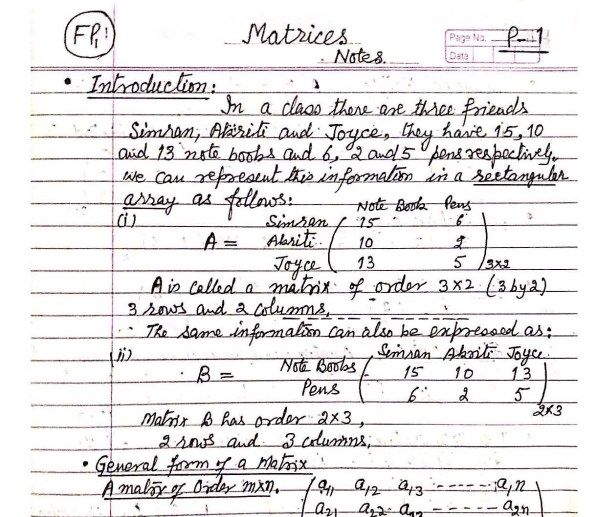 FP1! Matrices Page No. P-1
Notes. Date
• Introduction:
In a class there are three friends
Simran, Akriti and Joyce, they have 15, 10
and 13 note books and 6, 2 and 5 pens respectively.
we can represent this information in a rectangular
array as follows:
Note Book Pens
(i) Simran 15 6
A = Akriti 10 2
Joyce 13 5 3×2
A is called a matrix of order 3×2 (3 by 2)
3 rows and 2 columns,
· The same information can also be expressed as:
ii) Simran Akriti Joyce
B = Note Books 15 10 13
Pens 6 2 5
2×3
Matrix B has order 2×3,
2 rows and 3 columns,
• General form of a Matrix
A matrix of Order m×n. a11 a12 a13 ------ a1n
a21 a22 a23 ----- a2n